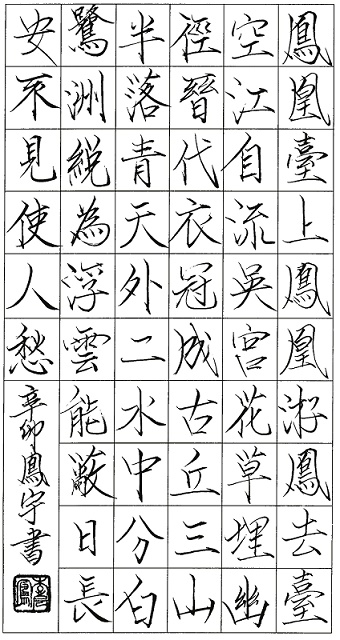 鳳凰臺上鳳凰游鳳去臺
空江自流吳宮花草埋幽
徑晉代衣冠成古丘三山
半落青天外二水中分白
鷺洲総為浮雲能蔽日長
安不見使人愁
辛卯鳳宇書